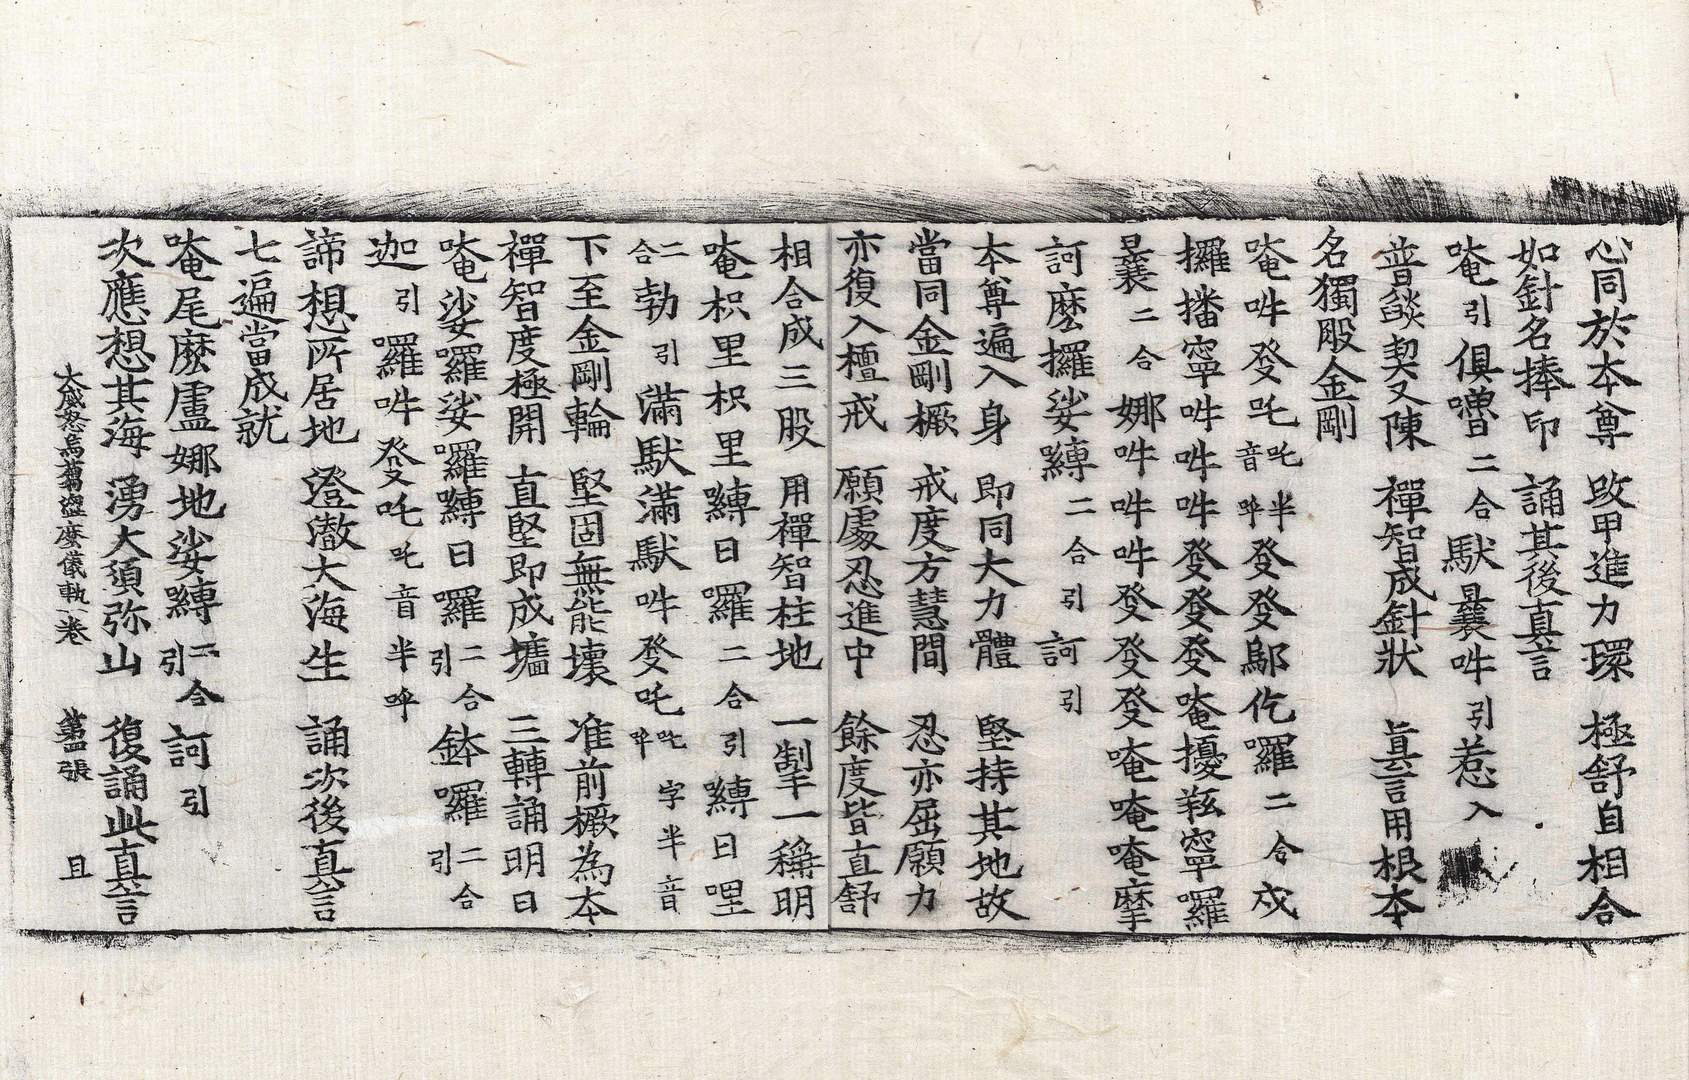 心同於本尊 改甲進力環 極舒自相合
如針名捧印 誦其後真言
唵引俱嚕二合馱曩吽引惹入
普燄契又陳 禪智成針狀 真言用根本
名獨股金剛
唵吽癹吒吒半音呼癹癹鄔仡囉二合戍
攞播寧吽吽吽癹癹癹唵擾羝寧囉
曩二合娜吽吽吽癹癹癹唵唵唵摩
訶麼攞娑嚩二合引訶引
本尊遍入身 即同大力體 堅持其地故
當同金剛橛 戒度方慧間 忍亦屈願力
亦復入檀戒 願處忍進中 餘度皆直舒
相合成三股 用禪智柱地 一掣一稱明
唵枳里枳里嚩日囉二合引嚩日哩
二合勃引滿馱滿馱吽癹吒吒字半音呼
下至金剛輪 堅固無能壞 准前橛為本
禪智度極開 直堅即成墻 三轉誦明日
唵娑囉娑囉嚩日囉二合引鉢囉二合引
迦引羅吽癹吒吒音半呼
諦想所居地 澄澈大海生 誦次後真言
七遍當成就
唵尾麼盧娜地娑嚩二合引訶引
次應想其海 湧大須弥山 復誦此真言
大威怒烏蒭澁麼儀軌一卷 第四張 且